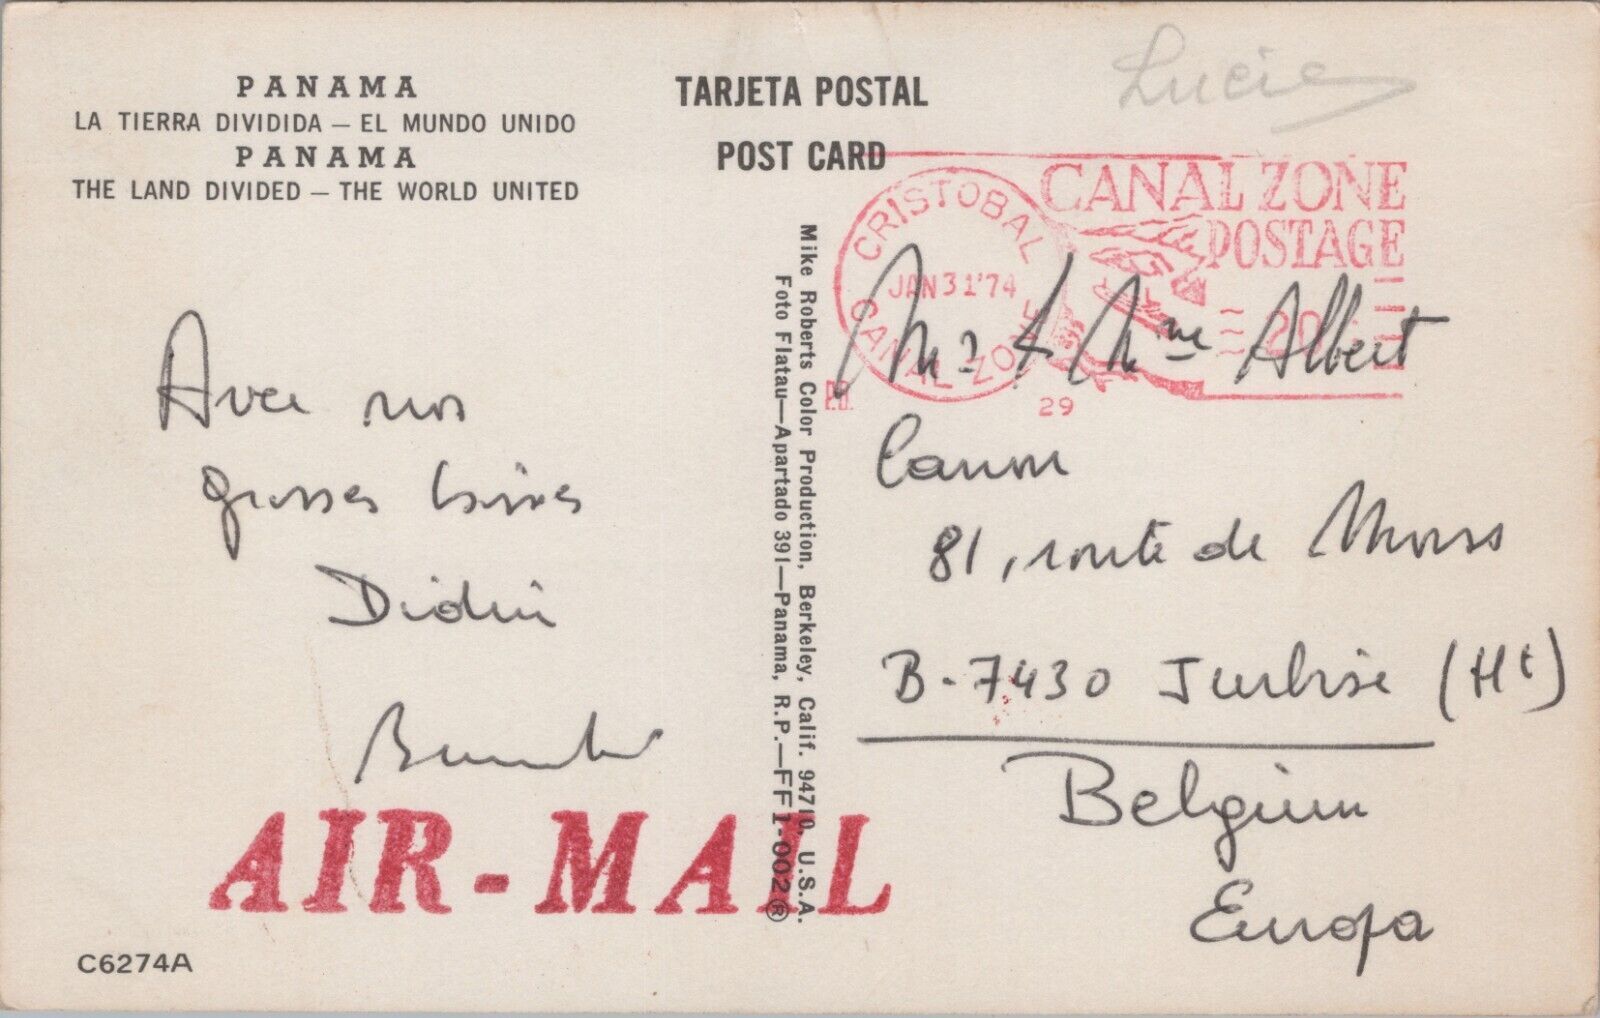 PANAMA
LA TIERRA DIVIDIDA — EL MUNDO UNIDO
PANAMA
THE LAND DIVIDED — THE WORLD UNITED
TARJETA POSTAL
POST CARD
Lucie
CRISTOBAL
JAN 31 '74
CANAL ZONE
CANAL ZONE
POSTAGE
20
P.B.
29
Avec nos
grosses bises
Didier
Mike Roberts Color Production, Berkeley, Calif. 94710, U.S.A.
Foto Flatau—Apartado 391—Panama, R.P.—FF1-002®
Mr & Mme Albert
81, route de Mons
B-7430 Jurbise (Ht)
Belgium
Europa
AIR-MAIL
C6274A